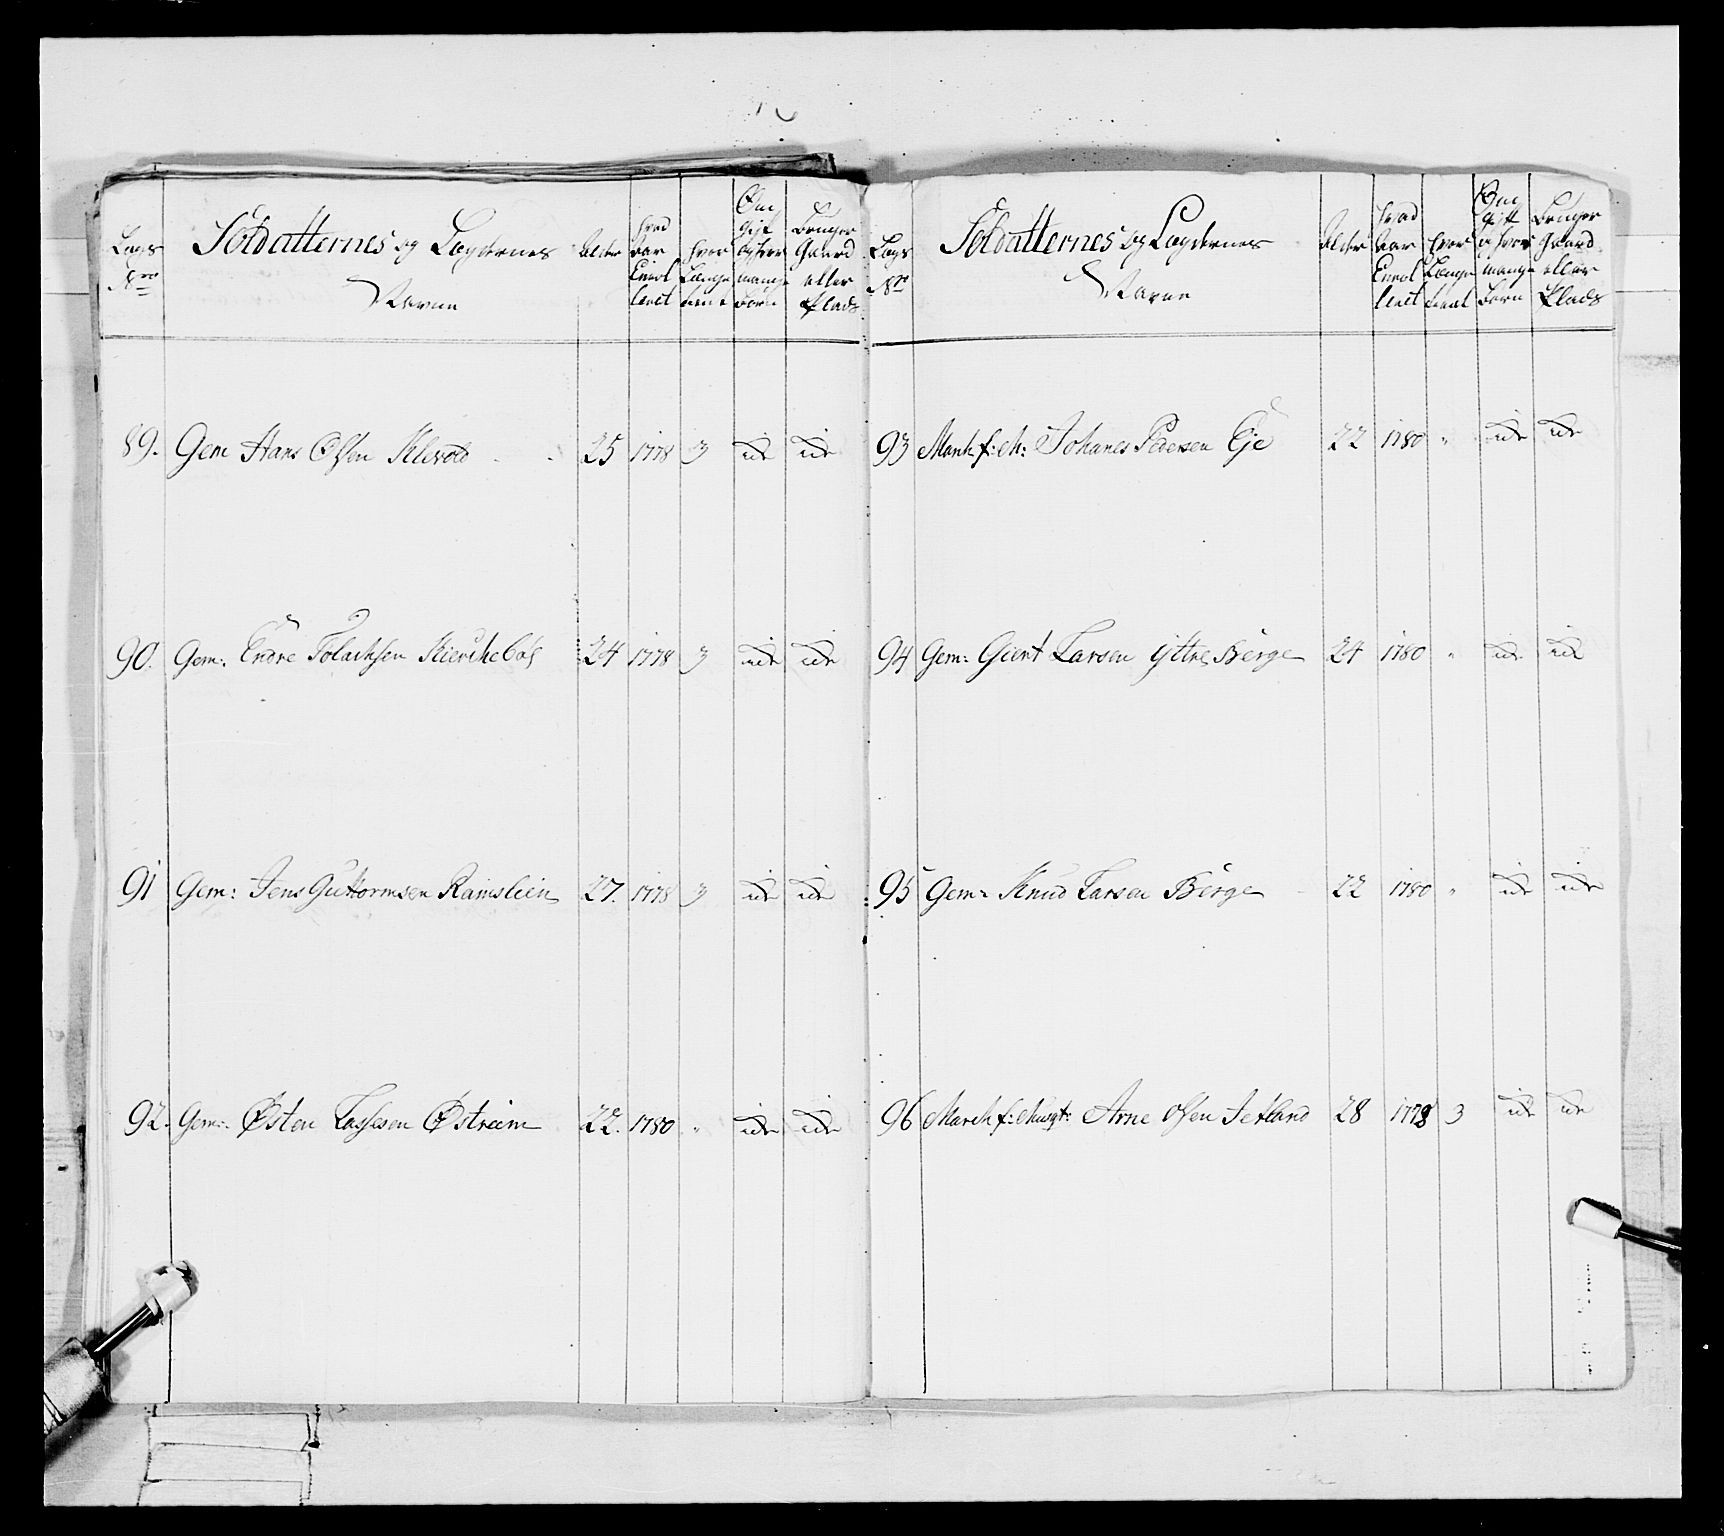 Lægs Nro | Soldatternes og Lægdernes Navne | Alder | hvad Aar Enrolleret | hvor Længe tient | Om Gift og hvor mange Børn | Bruger Gaard eller Plads
89. Gem Hans Olsen Klevold 25 1778 3 idr idr
90. Gem: Endre Tolachsen Kierchebøe 24 1778 3 idr idr
91 Gem: Jens Guttormsen Ramslien 27. 1778 3 idr idr
92. Gem: Østen Lassesen Østreim 22. 1780 " idr idr
Lægs Nro | Soldatternes og Lægdernes Navne | Alder | hvad Aar Enrolleret | hvor Længe tient | Om Gift og hvor mange Børn | Bruger Gaard eller Plads
93 Mank f: M: Johanes Pedersen Eje 22 1780 " idr idr
94 Gem: Giert Larsen Yttre Berge 24 1780 " idr idr
95 Gem: Knud Larsen Berge 22 1780 " idr idr
96 f: Musqt: Arne Olsen Jetland 28 1778 3 idr idr